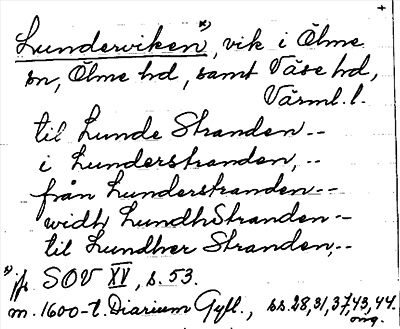 +
Lunderviken x), vik i Ölme
sn, Ölme hd, samt Väse hd,
Värml. l.
til Lunde Stranden --
i Lunderstranden, --
från Lunderstranden --
widh LundhStranden --
til Lundher Stranden, --
x) jfr SOV XV, s. 53.
m. 1600-t. Diarium Gyll., ss. 28, 31, 37, 43, 44.
orig.